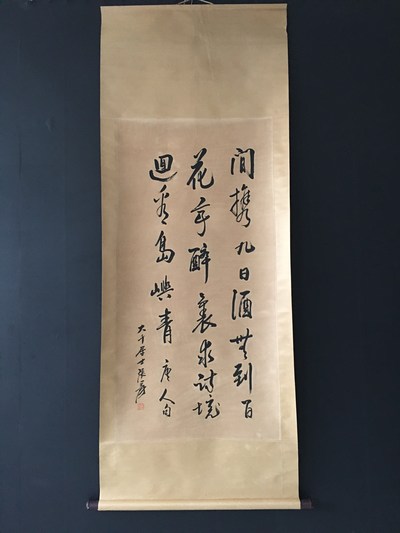 間攜九日酒到百
花亭醉裏求詩境
迴看島嶼青 唐人句
大千居士張爰